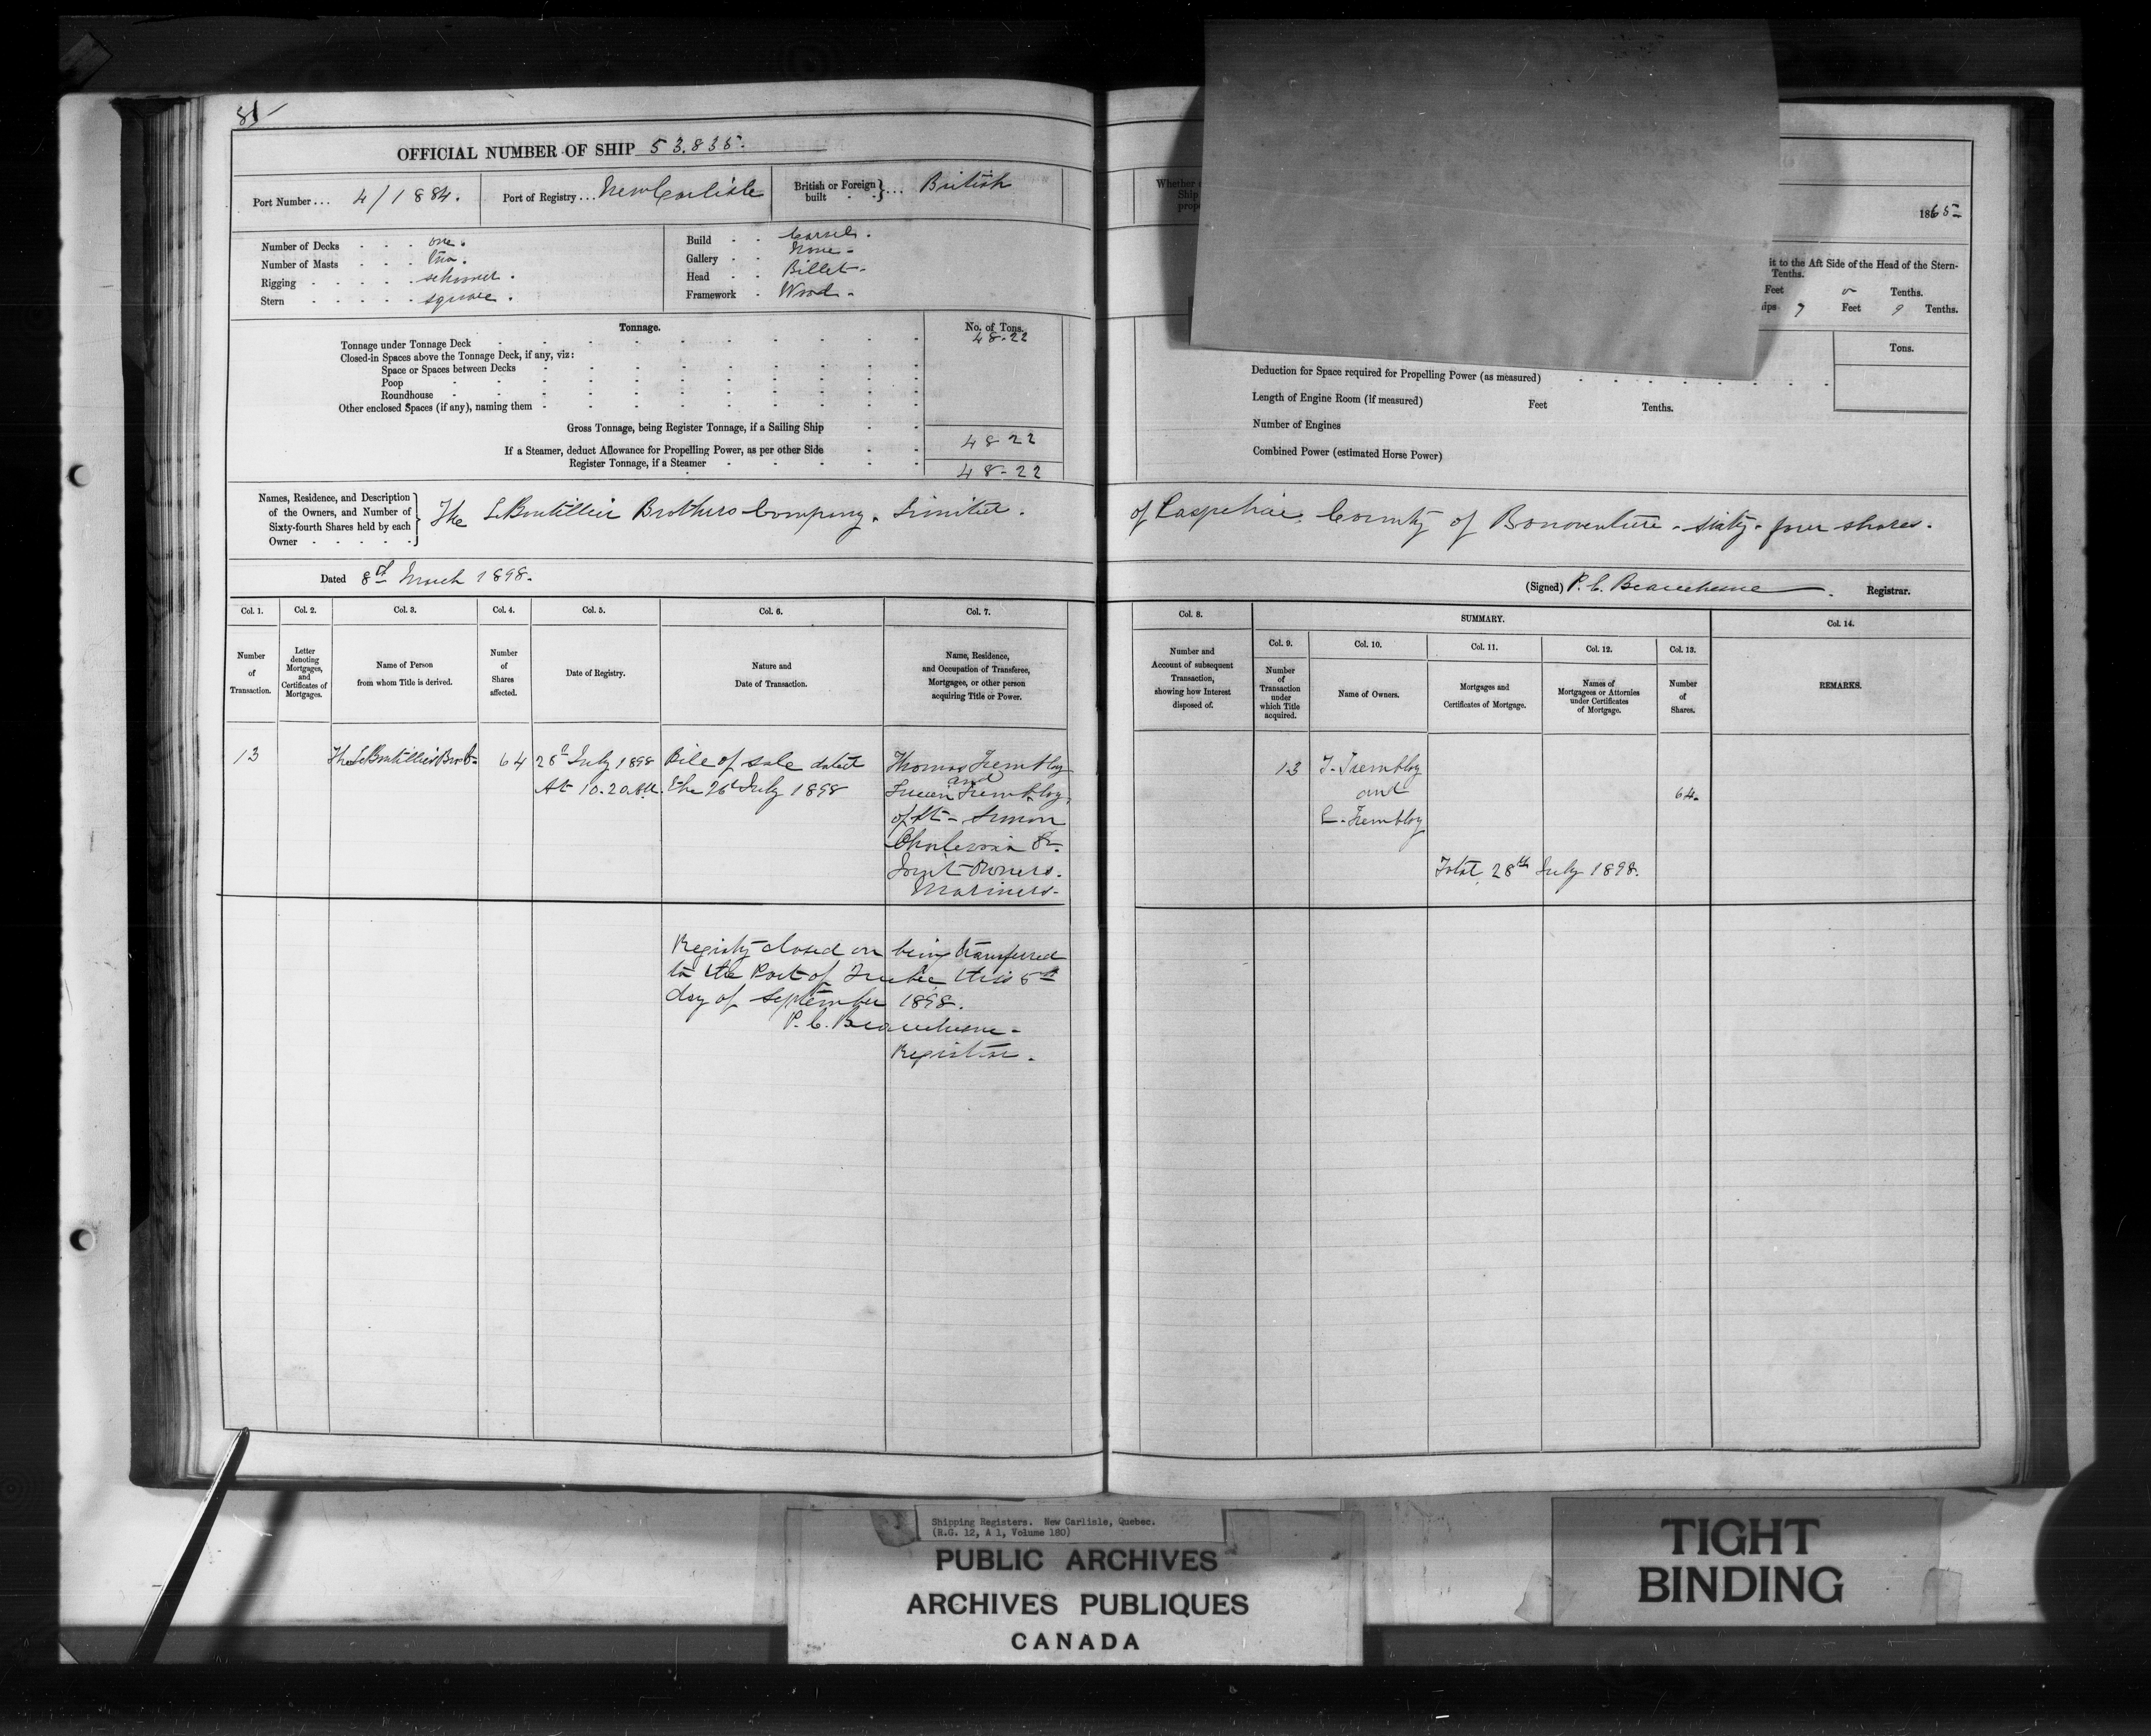 85
OFFICIAL NUMBER OF SHIP 53.835.
Port Number ... 4/1884. Port of Registry ... New Carlisle British or Foreign built } ... British
Number of Decks - - - one.
Number of Masts - - - two.
Rigging - - - - schooner.
Stern - - - - square.
Build - - Carvel.
Gallery - - None -
Head - - Billet -
Framework - Wood -
Tonnage. No. of Tons.
Tonnage under Tonnage Deck 48-22
Closed-in Spaces above the Tonnage Deck, if any, viz:
Space or Spaces between Decks
Poop
Roundhouse
Other enclosed Spaces (if any), naming them
Gross Tonnage, being Register Tonnage, if a Sailing Ship 48-22
If a Steamer, deduct Allowance for Propelling Power, as per other Side
Register Tonnage, if a Steamer 48-22
Names, Residence, and Description
of the Owners, and Number of
Sixty-fourth Shares held by each
Owner
The LeBoutillier Brothers Company. Limited.
Dated 8th March 1898.
Col. 1. Col. 2. Col. 3. Col. 4. Col. 5. Col. 6. Col. 7.
Number of Transaction.
Letter denoting Mortgages, and Certificates of Mortgages.
Name of Person from whom Title is derived.
Number of Shares affected.
Date of Registry.
Nature and Date of Transaction.
Name, Residence, and Occupation of Transferee, Mortgagee, or other person acquiring Title or Power.
13 The LeBoutillier Bros 64 28th July 1898 Bill of sale dated Thomas Tremblay
At 10.20 AM. the 26th July 1898 and
Tremblay,
of St- Simon
Charlevoix
Joint Owners.
Mariners-
Registry closed on being transferred
to the Port of Quebec this 5th
day of September 1898.
P. C. Beauchesne -
Registrar.
Whether
Ship
prop
1865
it to the Aft Side of the Head of the Stern-
Tenths.
Feet 0 Tenths.
ips 7 Feet 9 Tenths.
Tons.
Deduction for Space required for Propelling Power (as measured)
Length of Engine Room (if measured) Feet Tenths.
Number of Engines
Combined Power (estimated Horse Power)
of Paspebiac, County of Bonaventure - sixty-four shares.
(Signed) P. C. Beauchesne. Registrar.
Col. 8. SUMMARY. Col. 14.
Col. 9. Col. 10. Col. 11. Col. 12. Col. 13.
Number and Account of subsequent Transaction, showing how Interest disposed of.
Number of Transaction under which Title acquired.
Name of Owners.
Mortgages and Certificates of Mortgage.
Names of Mortgagees or Attornies under Certificates of Mortgage.
Number of Shares.
REMARKS.
13 T. Tremblay
and 64.
L. Tremblay
Total 28th July 1898.
Shipping Registers. New Carlisle, Quebec.
(R.G. 12, A 1, Volume 180)
PUBLIC ARCHIVES
ARCHIVES PUBLIQUES
CANADA
TIGHT
BINDING